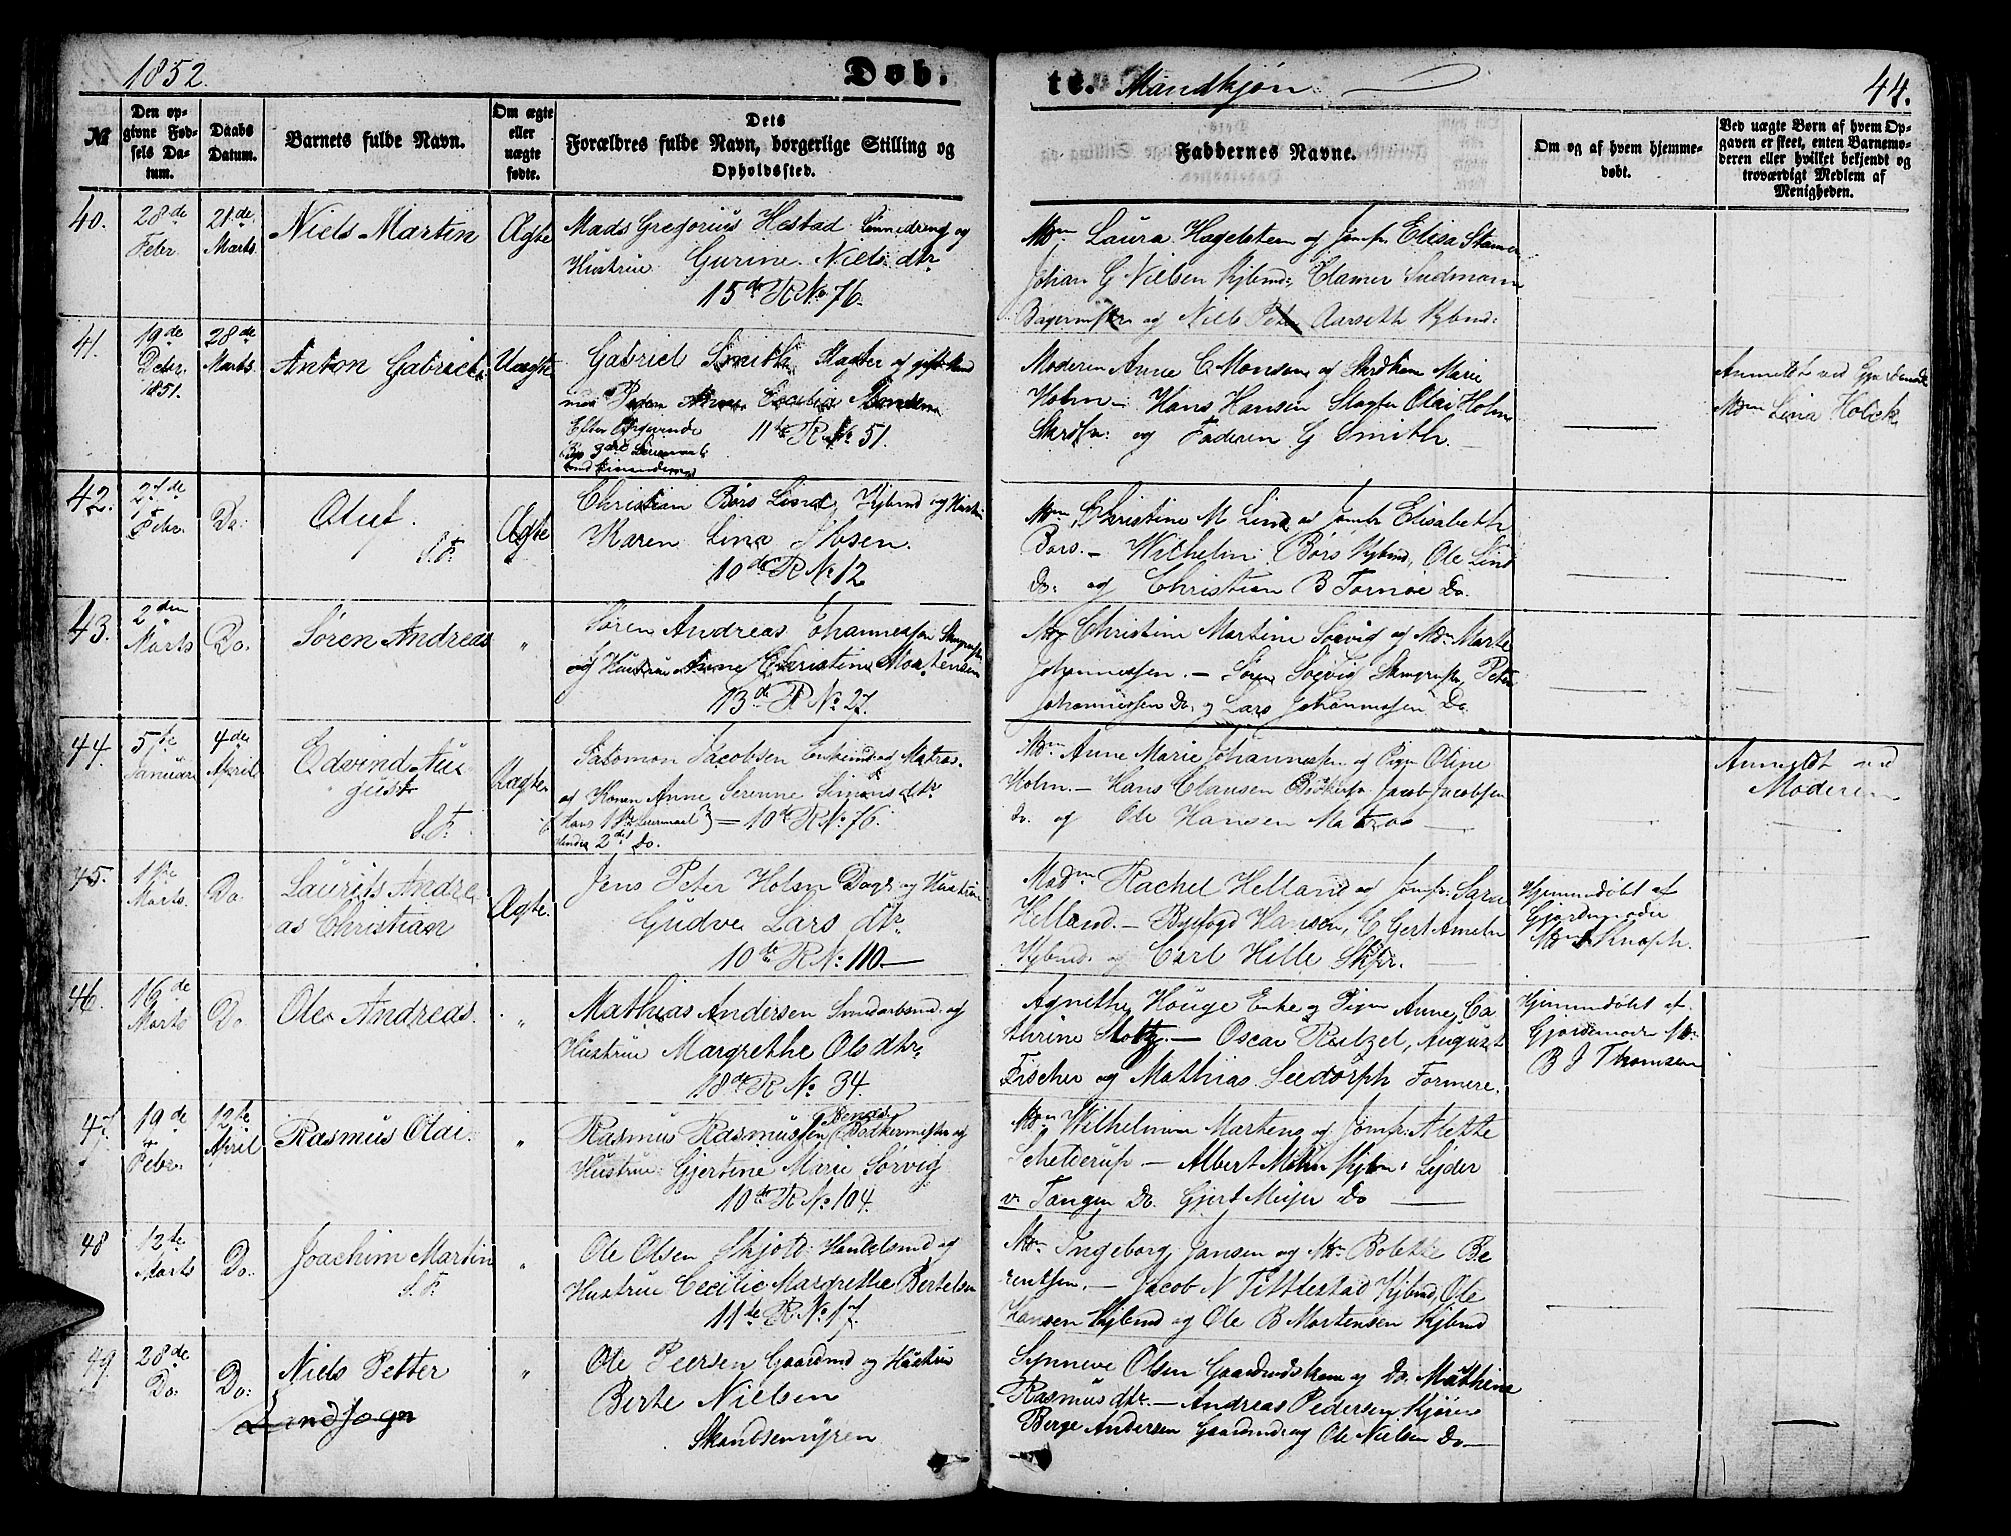 1852. Døb- te. Mandkjøn 44.
№
Den opgivne Fødsels Datum.
Daabs Datum.
Barnets fulde Navn.
Om ægte eller uægte fødte.
Dets Forældres fulde Navn, borgerlige Stilling og Opholdssted.
Faddernes Navne.
Om og af hvem hjemmedøbt.
Ved uægte Børn af hvem Opgaven er skeet, enten Barnemoderen eller hvilket bekjendt og troværdigt Medlem af Menigheden.
40. 28de Febr. 21de Marts. Niels Martin Ægte
Mads Gregorius Hestad og
Hustrue Gurine Niels dtr
15de R No 76.
Mdm Laura Hagelsteen og Jomfr Elisa
Johan G Nielsen Kjbmd: Clamer Sudmann
og Niels Peter Aarseth Kjbmd:
41. 19de Debr. 1851. 28de Marts. Anton Gabriel Uægte
Gabriel Smith Slagter og gift Mand
med Pigen Anne Cecilia Monsen
11te R No 51.
Moderen Anne C Monsen og Skrdkone Marie
Holm — Hans Hansen Slagter Olai Holm
Skrdr: og Faderen G Smith
Anmeldt ved
Mdm Lina Holck
42. 27de Febr. Do. Oluf. S.F. Ægte
Christian Børs Lind, Kjbmd og Hustru
Karen Lina Ibsen.
10de R No 12
Mdm Christine M Lind og Jomfr Elisabeth
Børs. — Wilhelm Børs Kjbmd, Ole Lind
Do: og Christian B Tornøe Do.
43. 2den Marts Do. Søren Andreas "
Søren Andreas Johannessen
og Hustrue Anne Christine Mortensen
13de R No 27.
Mdm Christine Martine Soevig og Mdm Marte
Johannessen. — Søren Soevig Peter
Johannessen Do. og Lars Johannessen Do.
44. 5te Januar 4de April Edvind August S.F. Uægte
Salomon Jacobsen Enkemd og Matros.
og Konen Anne Serenne Simons dtr
(Hans 1ste Leiermaal
Hendes 2det Do. — 10de R No 76.
Mdm Anne Marie Johannessen og Pigen Oline
Holm. — Hans Clausen Jacob Jacobsen
Do. og Ole Hansen Matros
Anmeldt ved
Moderen
45. 1ste Marts. Do. Laurits Andreas Christian Ægte.
Jens Peter Holm Dagk og Hustrue
Gudve Lars dtr.
10de R No 110.
Madm Rachel Helland og Jomfr: Sara
Helland. — Byefogd Hansen, C Gert Ameln
Kjbmd. og Carl Hille Skpr.
Hjemmedøbt af
Gjordemoder
Mdm Knoph.
46. 16de Marts Do. Ole Andreas. "
Mathias Andersen og
Hustrue Margrethe Ols dtr
18de R No 34.
Agnethe Houge Enke og Pigen Anne Ca
thrine Stoltz. — Oscar Reutzel, August
Fischer og Mathias Seedorph Formere.
Hjemmedøbt af
Gjordemoder Mdm
B J Thomsen
47. 19de Febr. 12te April Rasmus Olai. "
Rasmus Rasmussen Bødkermester og
Hustrue Gjertine Marie Sørvig
10de R No 104.
Mdm Wilhelmine Martens og Jomfr. Alette
Schelderup — Albert Mohn Kjbm: Lyder
v. Tangen Do. Gjert Meijer Do
48 12te Marts Do. Joachim Martin S.F. "
Ole Olsen Skjold: Handelsmd og
Hustrue Cecilie Margrethe Bertelsen
11te R. No 17.
Mdm Ingeborg Jansen og Mdm Bolette Be
rentsen. — Jacob N Tittlestad Kjbmd, Ole
Hansen Kjbmd og Ole B Mortensen Kjbmd
49. 28de Do: Do: Niels Petter "
Landsogn
Ole Peersen Gaardmd og Hustrue
Berte Nielsen
Skandsemyren
Synneve Olsen Gaardmdskone og Do. Mathine
Rasmus dtr. — Andreas Pedersen
Berge Andersen Gaardmd og Ole Nielsen Do